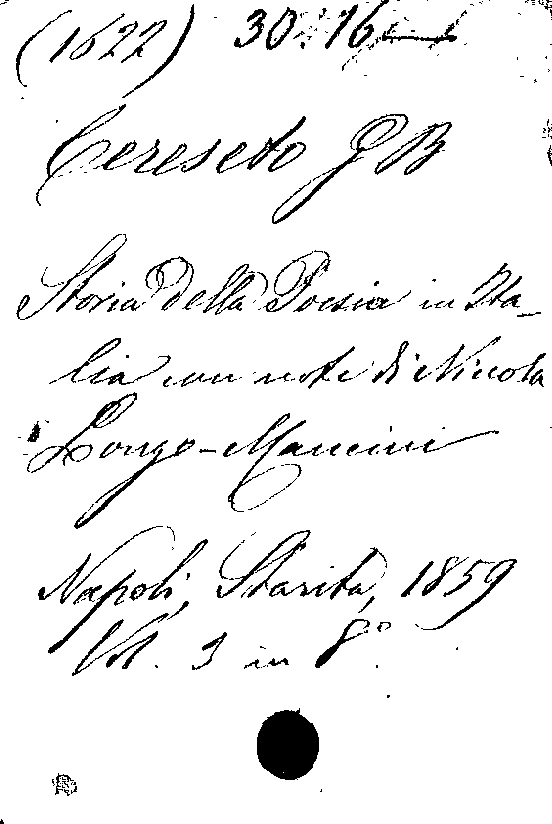 (1622) 30.16
Cereseto G B
Storia della Poesia in Ita-
lia con note di Nicola
Longo-Mancini
Napoli, Starita, 1859
Vol. 3 in 8°.